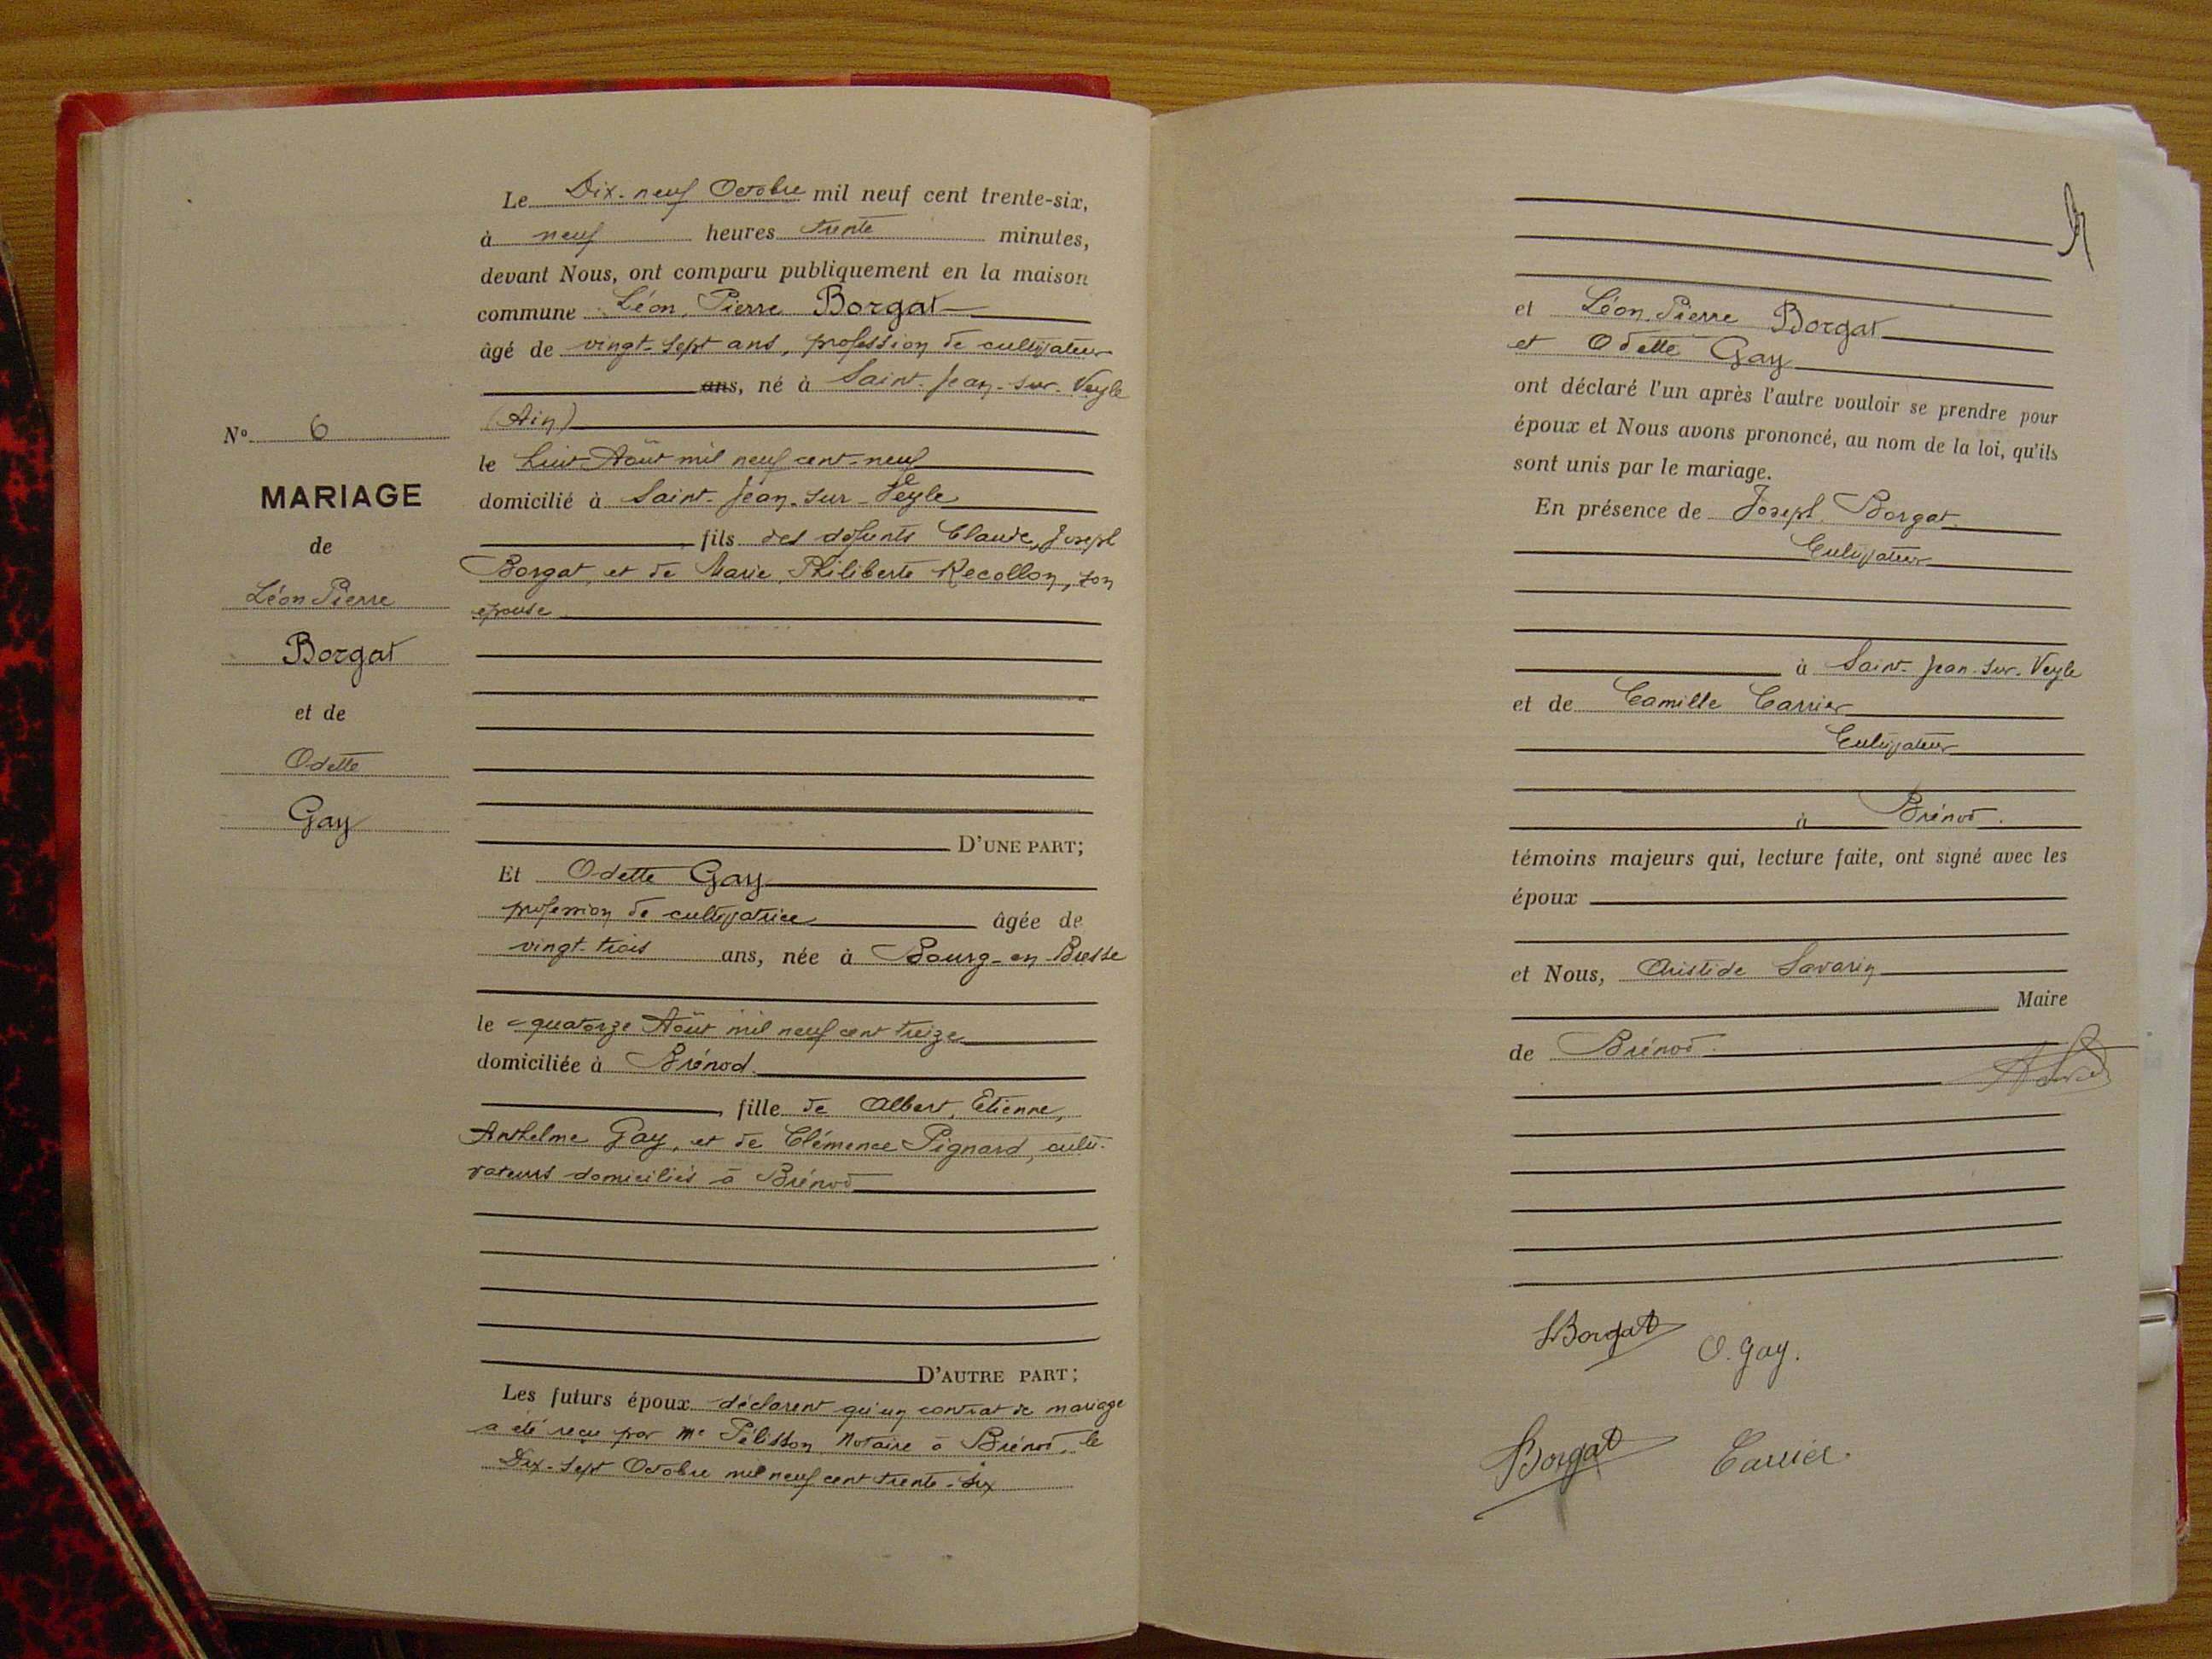 Le Dix-neuf Octobre mil neuf cent trente-six,
à neuf heures trente minutes,
devant Nous, ont comparu publiquement en la maison
commune Léon, Pierre Borgat
âgé de vingt-sept ans, profession de cultivateur
ans, né à Saint-Jean-sur-Veyle
(Ain)
le huit Août mil neuf cent-neuf
domicilié à Saint-Jean-sur-Veyle
fils des défunts Claude, Joseph
Borgat, et de Marie, Philiberte Recollon, son
épouse
D'UNE PART;
Et Odette Gay
profession de cultivatrice âgée de
vingt-trois ans, née à Bourg-en-Bresse
le quatorze Août mil neuf cent treize
domiciliée à Brénod.
fille de Albert, Etienne,
Anthelme Gay, et de Clémence Pignard, culti-
vateurs domiciliés à Brénod
D'AUTRE PART;
Les futurs époux déclarent qu'un contrat de mariage
a été reçu par Me Pélisson Notaire à Brénod, le
Dix-sept Octobre mil neuf cent trente-six
N° 6
MARIAGE
de
Léon Pierre
Borgat
et de
Odette
Gay
et Léon Pierre Borgat
et Odette Gay
ont déclaré l'un après l'autre vouloir se prendre pour
époux et Nous avons prononcé, au nom de la loi, qu'ils
sont unis par le mariage.
En présence de Joseph Borgat
Cultivateur
à Saint-Jean-sur-Veyle
et de Camille Carrier
Cultivateur
à Brénod.
témoins majeurs qui, lecture faite, ont signé avec les
époux
et Nous, Aristide Savarin
Maire
de Brénod.
Borgat O. Gay.
Borgat Carrier